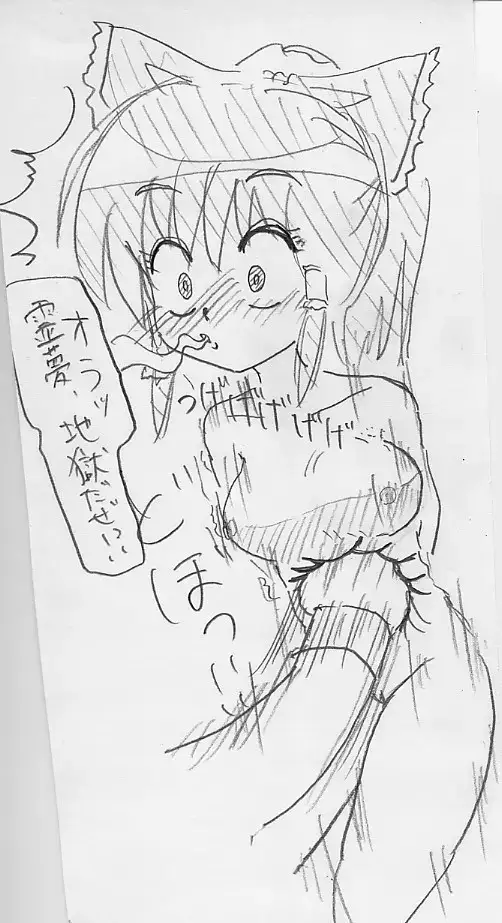 オラッ
霊夢、地獄だぜっ!!
うげげげげげ
とほっ!!